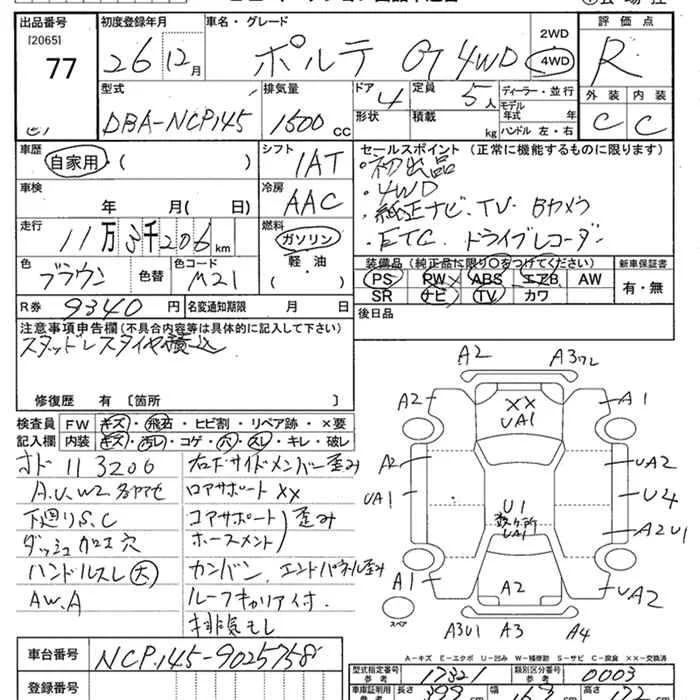 出品番号 初度登録年月 車名・グレード 評価点
[2065] 77 26 12月 ポルテ GT 4WD 2WD 4WD R
型式 排気量 ドア 4 定員 5人 ディーラー・並行 外装 内装
DBA-NCP145 1500 CC 形状 積載 kg モデル年式 年 ハンドル 左・右 C C
車歴 自家用・( ) シフト 1AT セールスポイント (正常に機能するものに限ります)
・初出品
・4WD
車検 年 月( 日) 冷房 AAC
・純正ナビ、TV、Bカメラ
・ETC、ドライブレコーダ
走行 11万3千206km 燃料 ガソリン 軽・油 ( )
装備品 (純正品に限り○をつけてください) 新車保証書
色 ブラウン 色替 色コード M21
PS PW ABS エアB AW 有・無
SR ナビ TV カワ
R券 9340円 名変通知期限 月 日 後日品
注意事項申告欄 (不具合内容等は具体的に記入して下さい)
スタッドレスタイヤ積込
修復歴 有 [箇所 ]
検査員 FW キズ・飛石・ヒビ割・リペア跡・×要
記入欄 内装 キズ・汚レ・コゲ・穴・スレ・キレ・破レ
オド 113206
A.U.W2 多ヤセ
下廻りS.C
ダッシュ加工穴
ハンドルスレ大
AW.A
右下サイドメンバー歪み
ロアサポートXX
コアサポート
ホースメント 歪み
カンバン、エンドパネル歪み
ルーフキャリア付.
排気モレ
A2 A3ワレ
A2 XX UA1 A1
A2 UA2
UA1 U4
U1 数ヶ所 UA1 A2U1
A1 A2 UA2
スペア A3U1 A3 A4
A-キズ E-エクボ U-凹み W-補修跡 S-サビ C-腐食 XX-交換済
車台番号 NCP145-9025758
型式指定番号 参考 17321 類別区分番号 参考 0003
登録番号
車庫証明用 参考 長さ 399 幅 163 高さ 172